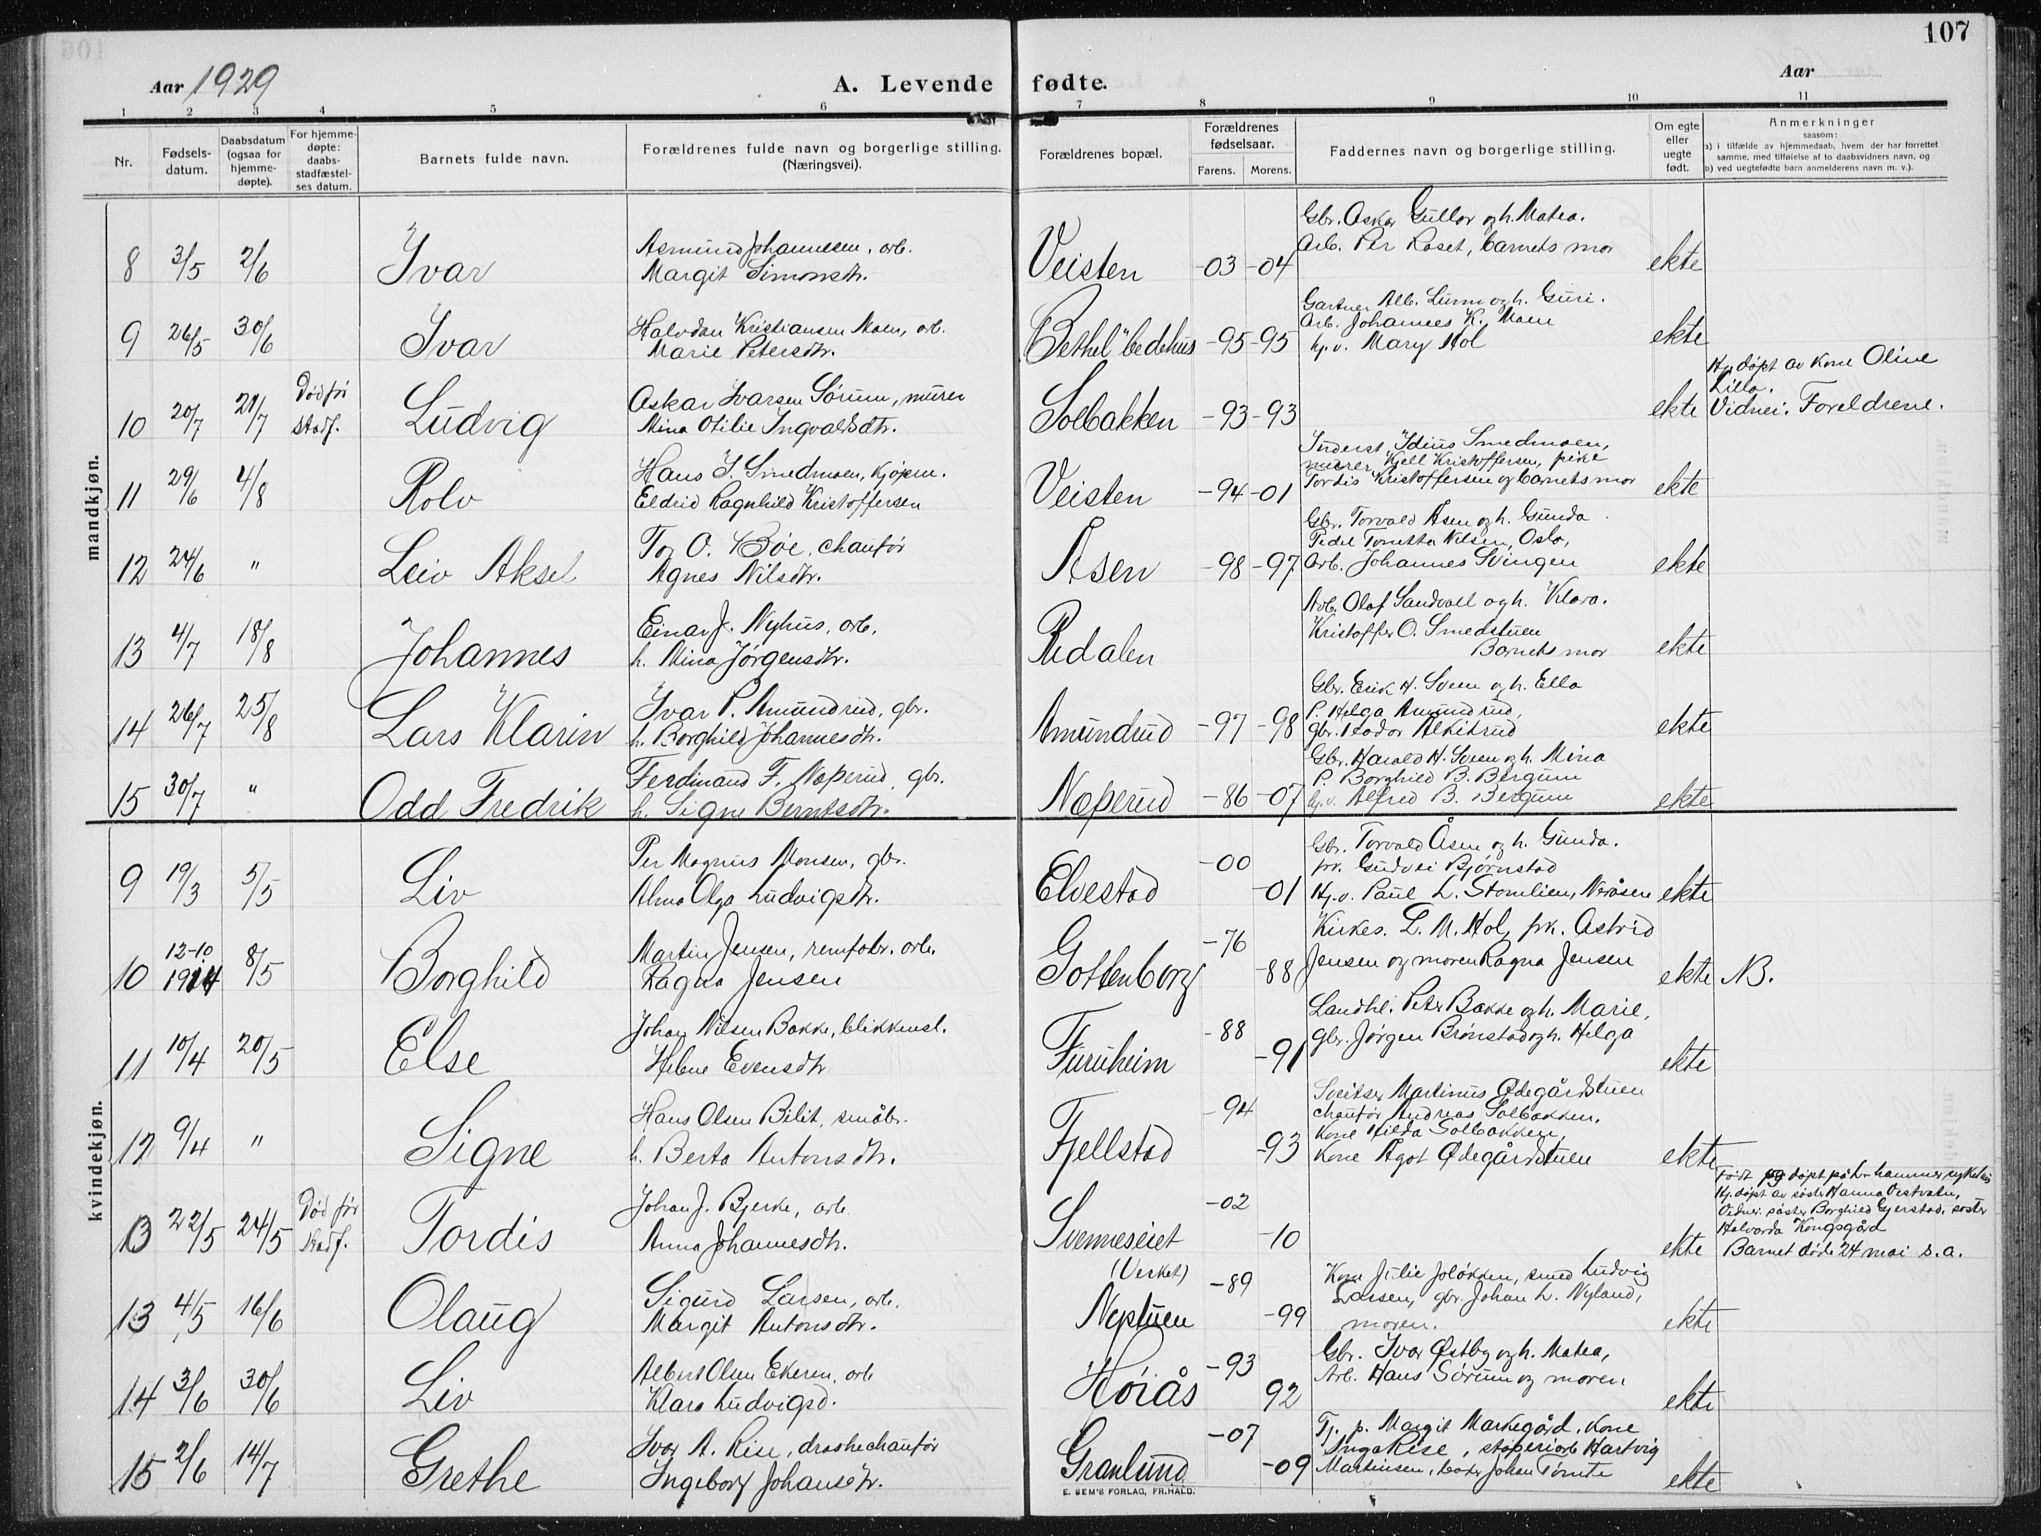 107
Aar 1929
A. Levende fødte.
Aar
1 2 3 4 5 6 7 8 9 10 11
Nr.
Fødsels-
datum.
Daabsdatum
(ogsaa for
hjemme-
døpte).
For hjemme-
døpte:
daabs-
stadfæstel-
ses datum.
Barnets fulde navn.
Forældrenes fulde navn og borgerlige stilling.
(Næringsvei).
Forældrenes bopæl.
Forældrenes
fødselsaar.
Farens. Morens.
Faddernes navn og borgerlige stilling.
Om egte
eller
uegte
født.
Anmerkninger
saasom:
a) i tilfælde av hjemmedaab, hvem der har forrettet
samme, med tilføielse af to daabsvidners navn, og
b) ved uegtefødte barn anmelderens navn m. v.).
mandkjøn.
8 3/5 2/6 Ivar
Asmund Johannessen, arb.
Margit Simonsdtr.
Veisten -03 -04
Gbr. Oskar Gullor og h. Matea.
Arb. Per Roset, barnets mor
ekte
9 26/5 30/6 Ivar
Halvdan Kristiansen Moen, arb.
Marie Petersdtr.
"Bethel" bedehus -95 -95
Gartner Alb. Lunn og h. Guri.
Arb. Johannes K. Moen
Hj.v. Mary Hol
ekte
10 20/7 21/7 Død før
stadf.
Ludvig
Oskar Ivarsen Sørum, murer
Mina Otilie Ingvaldsdtr.
Solbakken -93 -93
ekte
Hj. døpt av kone Oline
Lilla.
Vidnei. Foreldrene.
11 29/6 4/8 Rolv
Hans J. Smedmoen, kjøpm.
Eldrid Ragnhild Kristoffersen
Veisten -94 -01
Inderst Idius Smedmoen,
murer Kjell Kristoffersen, pike
Tordis Kristoffersen og barnets mor
ekte
12 24/6 " Leiv Aksel
Tor O. Bøe, chauför
Agnes Nilsdtr.
Åsen -98 -97
Gbr. Torvald Åsen og h. Gunda.
Pedel Tometta Nilsen, Oslo,
Arb. Johannes Svingen
ekte
13 4/7 18/8 Johannes
Einar J. Nyhus, arb.
h. Mina Jørgensdtr.
Rudalen
Arb. Olaf Sandvoll og h. Klara.
Kristoffer O. Smedstuen
Barnets mor
ekte
14 26/7 25/8 Lars Klarin
Ivar P. Amundrud, gbr.
h. Borghild Johannesdtr.
Amundrud -97 -98
Gbr. Erik H. Sveen og h. Ella
P. Helga Amundrud,
gbr. Isador Alkitrud
ekte
15 30/7 " Odd Fredrik
Ferdinand F. Næperud, gbr.
h. Signe Berntsdtr.
Næperud -86 -07
Gbr. Harald H. Sveen og h. Mina
P. Borghild B. Bergum
Hj.v. Alfred B. Bergum
ekte
kvindekjøn.
9 19/3 5/5 Liv
Per Magnus Monsen, gbr.
Alma Olga Ludvigsdtr.
Elvestad -00 -01
Gbr. Torvald Åsen og h. Gunda.
frk. Gudvei Bjørnstad
Hj.v. Paul L. Stomlien, Neråsen
ekte
10 12-10
1914 8/5 Borghild
Martin Jensen, renfabr. arb.
Ragna Jensen
Gottenborg -76 -88
Kirkes. L. M. Hol, frk. Astrid
Jensen og moren Ragna Jensen
ekte NB.
11 10/4 20/5 Else
Johan Nilsen Bakke, blikkensl.
Helene Evensdtr
Furuheim -88 -91
Landh. Peter Bakke og h. Marie,
gbr. Jørgen Brønstad og h. Helga
ekte
12 9/4 " Signe
Hans Olsen Bilit, småbr.
h. Berta Antonsdtr.
Fjellstad -94 -93
Sveitser Martinus Ødegårdstuen
chauför Andreas Solbakken,
Kone Hilda Solbakken,
Kone Ågot Ødegårdstuen
ekte
13 22/5 24/5 Død før
stadf.
Tordis
Johan J. Bjerke, arb.
Anna Johannesdtr.
Svenneseiet -02 -10
(Verket)
ekte
Født og døpt på L-hammer sykehus
Hj. døpt av søster Hanna Vestvatn,
Vidnei. søster Borghild Gjerstad, søster
Halvarda Kongsgård
Barnet døde 24 mai s.a.
13 4/5 16/6 Olaug
Sigurd Larsen, arb.
Margit Antonsdtr.
Neptuen -89 -99
Kone Julie Joløkken, smed Ludvig
Larsen, gbr. Johan L. Nyland,
moren.
ekte
14 3/6 30/6 Liv
Albert Olsen Ekeren, arb
Klara Ludvigsd.
Høiås -93 92
Gbr. Ivar Østby og h. Matea,
Arb. Hans Sørum og moren
ekte
15 2/6 14/7 Grethe
Ivar A. Rise, droschechauför
Ingeborg Johansdtr.
Granlund -07 -09
Tj. p. Margit Markegård, Kone
Inga Rise, støperiarb. Hartvig
Martinsen, Johan Tømte
ekte
E. SEM'S FORLAG, FR.HALD.